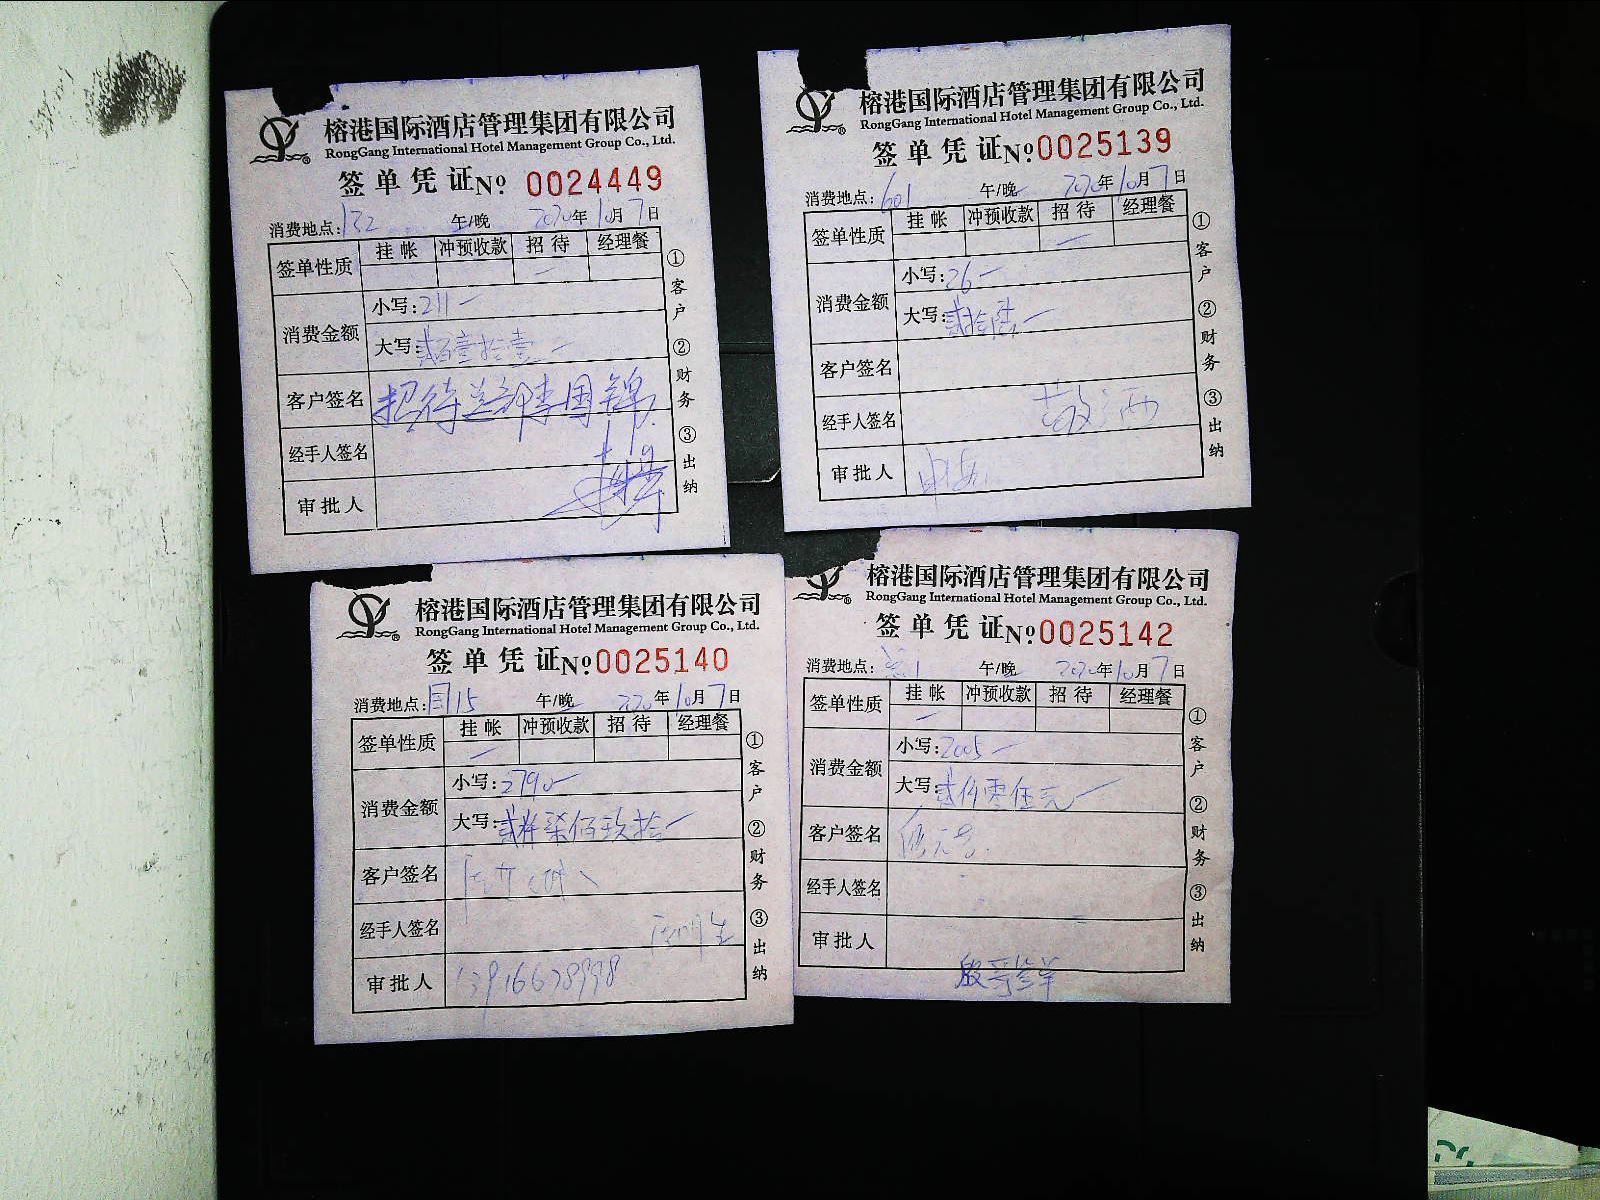 榕港国际酒店管理集团有限公司
RongGang International Hotel Management Group Co., Ltd.
签单凭证№ 0024449
消费地点: 132 午/晚 2020年10月7日
签单性质 挂帐 冲预收款 招待 经理餐
消费金额 小写: 211
大写: 贰百壹拾壹
客户签名 招待总部李国锦
经手人签名
审批人
①客户 ②财务 ③出纳
榕港国际酒店管理集团有限公司
RongGang International Hotel Management Group Co., Ltd.
签单凭证№ 0025139
消费地点: 601 午/晚 2020年10月7日
签单性质 挂帐 冲预收款 招待 经理餐
消费金额 小写: 26
大写: 贰拾陆
客户签名
经手人签名
审批人
①客户 ②财务 ③出纳
榕港国际酒店管理集团有限公司
RongGang International Hotel Management Group Co., Ltd.
签单凭证№ 0025140
消费地点: 15 午/晚 2020年10月7日
签单性质 挂帐 冲预收款 招待 经理餐
消费金额 小写: 2790
大写: 贰仟柒佰玖拾
客户签名
经手人签名
审批人
①客户 ②财务 ③出纳
榕港国际酒店管理集团有限公司
RongGang International Hotel Management Group Co., Ltd.
签单凭证№ 0025142
消费地点: 午/晚 2020年10月7日
签单性质 挂帐 冲预收款 招待 经理餐
消费金额 小写: 2005
大写: 贰仟零伍元
客户签名
经手人签名
审批人
①客户 ②财务 ③出纳